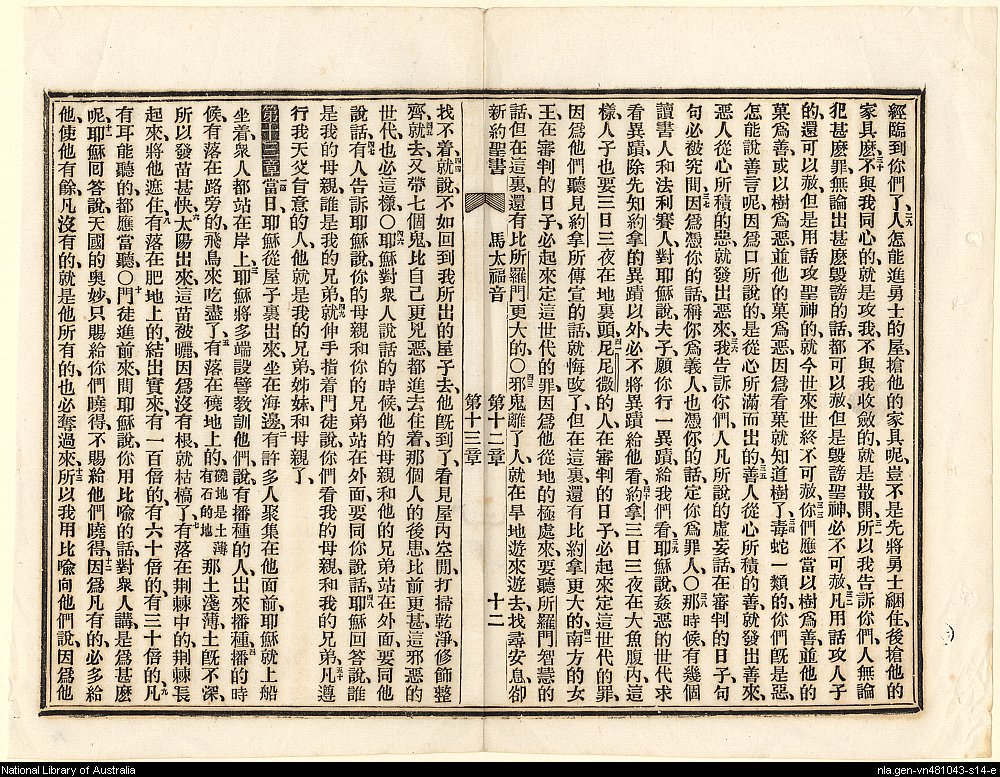 經臨到你們了、二九人怎能進勇士的屋、搶他的家具呢、豈不是先將勇士綑住、後搶他的
家具麽、三十不與我同心的、就是攻我、不與我收斂的、就是散開、三一所以我告訴你們、人無論
犯甚麽罪、無論出甚麽毀謗的話、都可以赦、但是毀謗聖神、必不可赦、三二凡用話攻人子
的、還可以赦、但是用話攻聖神的、就今世來世終不可赦、三三你們應當以樹爲善、並他的
菓爲善、或以樹爲惡、並他的菓爲惡、因爲看菓就知道樹了、三四毒蛇一類的、你們旣是惡、
怎能說善言呢、因爲口所說的、是從心所滿而出的、三五善人從心所積的善、就發出善來、
惡人從心所積的惡、就發出惡來、三六我告訴你們、人凡所說的虛妄話、在審判的日子、句
句必被究問、三七因爲憑你的話、稱你爲義人、也憑你的話、定你爲罪人、〇三八那時候、有幾個
讀書人和法利賽人、對耶穌說、夫子、願你行一異蹟給我們看、三九耶穌說、姦惡的世代求
看異蹟、除先知約拿的異蹟以外、必不將異蹟給他看、四十約拿三日三夜在大魚腹內、這
樣、人子也要三日三夜在地裏頭、四一尼尼微的人、在審判的日子、必起來定這世代的罪、
因爲他們聽見約拿所傳宣的話、就悔改了、但在這裏還有比約拿更大的、四二南方的女
王、在審判的日子、必起來定這世代的罪、因爲他從地的極處來、要聽所羅門智慧的
話、但在這裏、還有比所羅門更大的、〇四三邪鬼離了人、就在旱地遊來遊去、找尋安息、卻
新約聖書 馬太福音 第十二章 第十三章 十二
找不着、四四就說、不如回到我所出的屋子去、他旣到了、看見屋內空閒、打掃乾淨、修飾整
齊、四五就去又帶七個鬼、比自己更兇惡、都進去住着、那個人的後患、比前更甚、這邪惡的
世代、也必這樣、〇四六耶穌對衆人說話的時候、他的母親和他的兄弟、站在外面、要同他
說話、四七有人告訴耶穌說、你的母親和你的兄弟、站在外面、要同你說話、四八耶穌回答說、誰
是我的母親、誰是我的兄弟、四九就伸手指着門徒說、你們看我的母親和我的兄弟、五十凡遵
行我天父旨意的人、他就是我的兄弟姊妹和母親了、
第十三章 一當日、耶穌從屋子裏出來、坐在海邊、二有許多人聚集在他面前、耶穌就上船
坐着、衆人都站在岸上、三耶穌將多端設譬教訓他們、說、有播種的人出來播種、四播的時
候、有落在路旁的、飛鳥來吃盡了、五有落在磽地上的、磽地是土薄有石的地那土淺薄、土旣不深、
所以發苗甚快、六太陽出來、這苗被曬、因爲沒有根、就枯槁了、七有落在荊棘中的、荊棘長
起來、將他遮住、八有落在肥地上的、結出實來、有一百倍的、有六十倍的、有三十倍的、九凡
有耳能聽的、都應當聽、〇十門徒進前來、問耶穌說、你用比喩的話對衆人講、是爲甚麽
呢、十一耶穌回答說、天國的奧妙、只賜給你們曉得、不賜給他們曉得、十二因爲凡有的、必多給
他、使他有餘、凡沒有的、就是他所有的、也必奪過來、十三所以我用比喩向他們說、因爲他
National Library of Australia
nla.gen-vn481043-s14-e